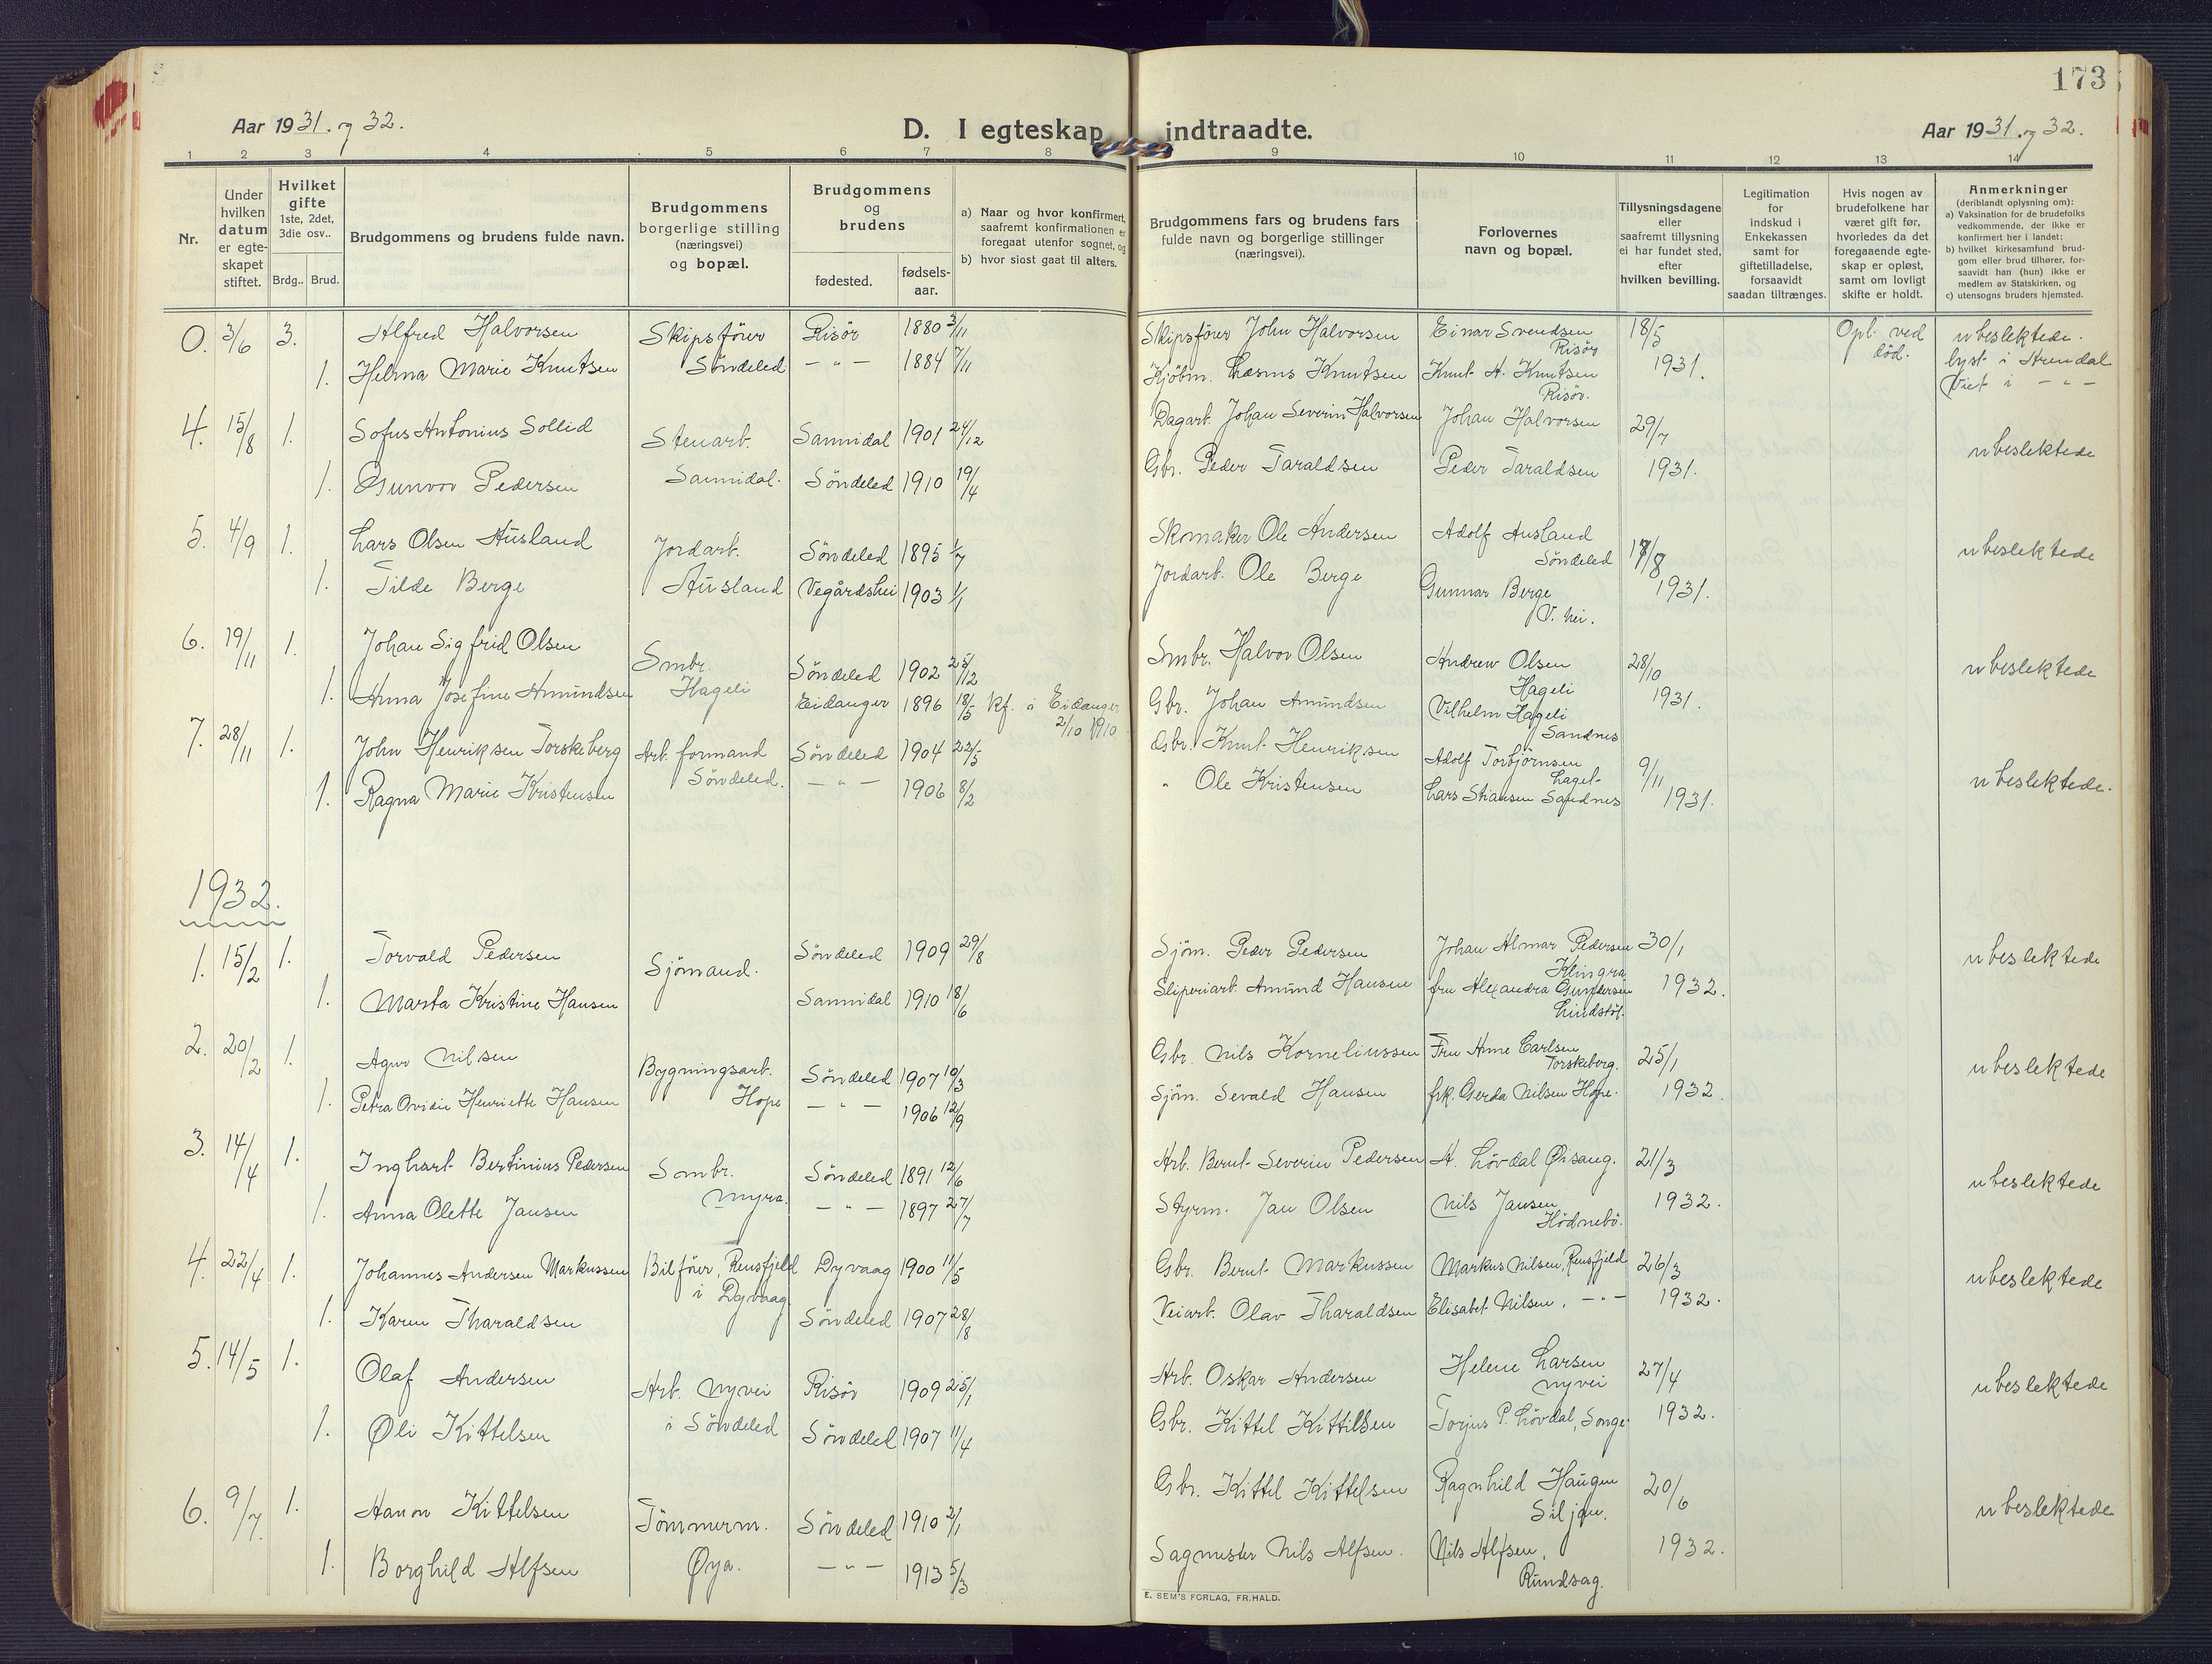 173
Aar 1931. og 32.
D. I egteskap indtraadte.
Aar 1931. og 32.
1 2 3 4 5 6 7 8 9 10 11 12 13 14
Nr.
Under hvilken datum er egteskapet stiftet.
Hvilket gifte 1ste, 2det, 3die osv..
Brdg.. Brud.
Brudgommens og brudens fulde navn.
Brudgommens borgerlige stilling (næringsvei) og bopæl.
Brudgommens og brudens
fødested.
fødsels-aar.
a) Naar og hvor konfirmert, saafremt konfirmationen er foregaat utenfor sognet, og
b) hvor sidst gaat til alters.
Brudgommens fars og brudens fars fulde navn og borgerlige stillinger (næringsvei).
Forlovernes navn og bopæl.
Tillysningsdagene eller saafremt tillysning ei har fundet sted, efter hvilken bevilling.
Legitimation for indskud i Enkekassen samt for giftetilladelse, forsaavidt saadan tiltrænges.
Hvis nogen av brudefolkene har været gift før, hvorledes da det foregaaende egteskap er opløst, samt om lovligt skifte er holdt.
Anmerkninger (deriblandt oplysning om):
a) Vaksination for de brudefolks vedkommende, der ikke er konfirmert her i landet;
b) hvilket kirkesamfund brudgom eller brud tilhører, forsaavidt han (hun) ikke er medlem av Statskirken, og
c) utensogns bruders hjemsted.
0. 3/6 3. Alfred Halvorsen Skipsförer Risör 1880 3/11 Skipsförer John Halvorsen Einar Svendsen Risör 18/5 Opl. ved död. ubeslektede.
1. Helma Marie Knutsen Söndeled — " — 1884 7/11 Kjöbm. Rasmus Knutsen Knut A. Knutsen Risör. 1931. lyst i Arendal
Viet i — " —
4. 15/8 1. Sofus Antonius Sollid Stenarb. Sannidal 1901 24/12 Dagarb. Johan Severin Halvorsen Johan Halvorsen 29/7 ubeslektede
1. Gunvor Pedersen Sannidal. Söndeled 1910 19/4 Gbr. Peder Taraldsen Peder Taraldsen 1931.
5. 4/9 1. Lars Olsen Ausland Jordarb. Söndeled 1895 1/7 Skomaker Ole Andersen Adolf Ausland Söndeled 17/8 ubeslektede
1. Tilde Berge Ausland Vegårdshei 1903 1/1 Jordarb. Ole Berge Gunnar Berge V. hei. 1931.
6. 19/11 1. Johan Sigfrid Olsen Smbr. Söndeled 1902 25/12 Smbr. Halvor Olsen Andrew Olsen Hageli 28/10 ubeslektede
1. Anna Josefine Amundsen Hageli Eidanger 1896 18/5 Kf. i Eidanger 2/10 1910 Gbr. Johan Amundsen Vilhelm Hageli Sandnes 1931.
7. 28/11 1. John Henriksen Torskeberg Arb. formand Söndeled 1904 22/5 Gbr. Knut Henriksen Adolf Torbjörnsen Laget 9/11 ubeslektede.
1. Ragna Marie Kristensen Söndeled. — " — 1906 8/2 " Ole Kristensen Lars Stiansen Sandnes 1931.
1932.
1. 15/2 1. Torvald Pedersen Sjömand. Söndeled 1909 29/8 Sjöm. Peder Pedersen Johan Almar Pedersen Klingra 30/1 ubeslektede
1. Marta Kristine Hansen Sannidal 1910 18/6 Sliperiarb. Amund Hansen fru Alexandra Gundersen Lindstöl. 1932.
2. 20/2 1. Agur Nilsen Bygningsarb. Söndeled 1907 10/3 Gbr. Nils Korneliussen Fru Anne Carlsen Torskeberg. 25/1 ubeslektede
1. Petra Ovidie Henriette Hansen Hope — " — 1906 12/9 Sjöm. Sevald Hansen frk. Gerda Nilsen Hope. 1932.
3. 14/4 1. Inghart Bertinius Pedersen Smbr. Söndeled 1891 12/6 Arb. Bernt Severin Pedersen A. Lövdal Øisang. 21/3 ubeslektede
1. Anna Olette Jansen Myra. — " — 1897 27/7 Styrm. Jan Olsen Nils Jansen Hödnebö. 1932.
4. 22/4 1. Johannes Andersen Markussen Bilförer, Rensfjeld Dyvaag 1900 11/5 Gbr. Bernt Markussen Markus Nilsen, Rensfjeld 26/3 ubeslektede
1. Karen Tharaldsen i Dyvaag Söndeled 1907 28/8 Veiarb. Olav Tharaldsen Elisabet Nilsen, — " — 1932.
5. 14/5 1. Olaf Andersen Arb. Nyvei Risör 1909 25/1 Arb. Oskar Andersen Helene Larsen Nyvei 27/4 ubeslektede
1. Øli Kittelsen i Söndeled Söndeled 1907 11/4 Gbr. Kittel Kittilsen Torjus P. Lövdal, Songe. 1932.
6. 9/7. 1. Hanon Kittelsen Tömmerm. Söndeled 1910 2/1 Gbr. Kittel Kittelsen Ragnhild Haugen Siljan. 20/6 ubeslektede
1. Borghild Alfsen Øya. — " — 1913 5/3 Sagmester Nils Alfsen. Nils Alfsen, Rundsag. 1932.
E. SEM'S FORLAG, FR.HALD.